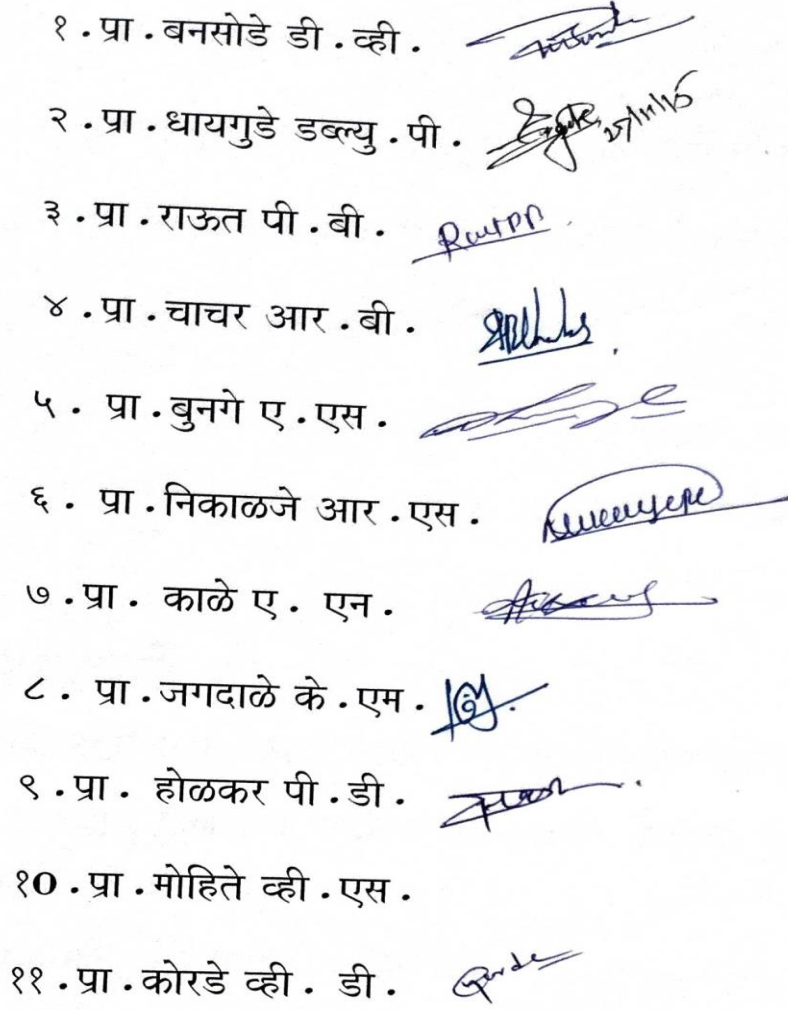 १.प्रा.बनसोडे डी.व्ही.
२.प्रा.धायगुडे डब्ल्यु.पी. 25/11/15
३.प्रा.राऊत पी.बी. RautPB
४.प्रा.चाचर आर.बी.
५. प्रा.बुनगे ए.एस.
६. प्रा.निकाळजे आर.एस.
७.प्रा. काळे ए. एन.
८. प्रा.जगदाळे के.एम.
९.प्रा. होळकर पी.डी.
१0.प्रा.मोहिते व्ही.एस.
११.प्रा.कोरडे व्ही. डी.